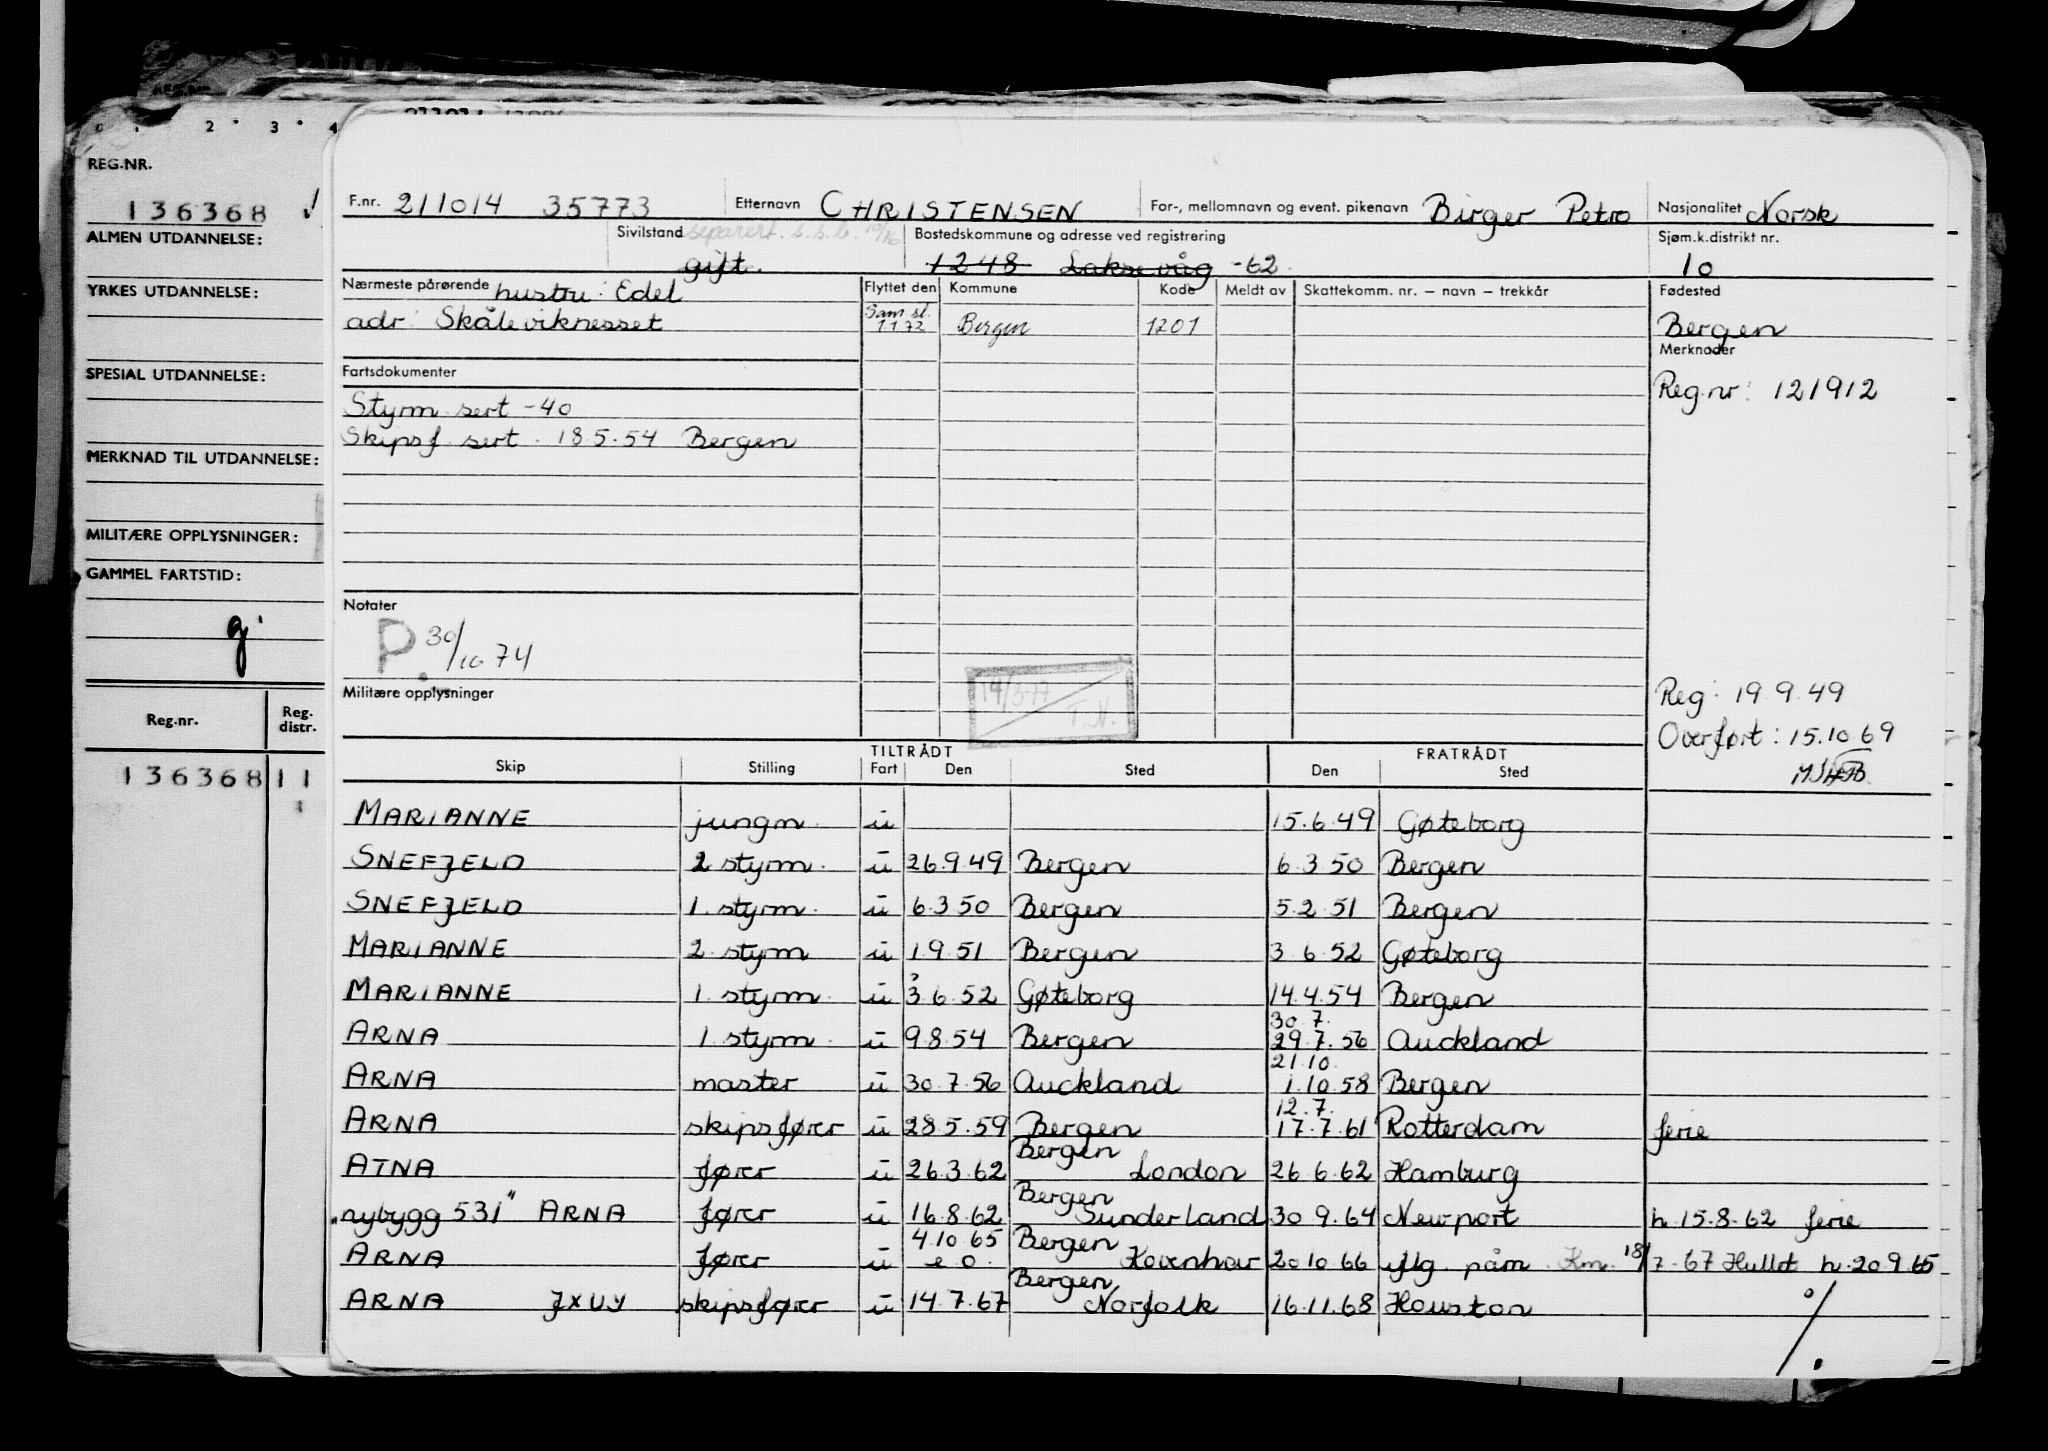 2 3 4
REG.NR.
136368
ALMEN UTDANNELSE:
YRKES UTDANNELSE:
SPECIAL UTDANNELSE:
MERKNAD TIL UTDANNELSE:
MILITÆRE OPPLYSNINGER:
GAMMEL FARTSTID:
g.
Reg.nr. Reg. distr.
136368 11
F.nr. 211014 35773 Etternavn CHRISTENSEN For-, mellomnavn og event. pikenavn Birger Petro Nasjonalitet Norsk
Sivilstand separert. s.s.b. 10/76 Bostedskommune og adresse ved registrering Sjøm.k.distrikt nr.
gift. 1248 Laksevåg -62. 10
Nærmeste pårørende hustru: Edel Flyttet den Kommune Kode Meldt av Skattekomm. nr. – navn – trekkår Fødested
adr: Skåleviknesset Sam sl. 1.1.72 Bergen 1201 Bergen
Merknader
Fartsdokumenter
Reg.nr: 121912
Styrm. sert -40
Skipsf. sert. 18.5.54 Bergen
Notater
P. 30/10 74
Militære opplysninger
14/3-77
T.N.
Reg: 19.9.49
Overført: 15.10.69
TILTRÅDT FRATRÅDT
Skip Stilling Fart Den Sted Den Sted
MARIANNE jungm. u 15.6.49 Gøteborg
SNEFJELD 2 styrm. u 26.9.49 Bergen 6.3.50 Bergen
SNEFJELD 1. styrm. u 6.3.50 Bergen 5.2.51 Bergen
MARIANNE 2. styrm u 1.9.51 Bergen 3.6.52 Gøteborg
MARIANNE 1. styrm. u 3.6.52 Gøteborg 14.4.54 Bergen
30.7.
ARNA 1. styrm. u 9.8.54 Bergen 29.7.56 Auckland
21.10.
ARNA master u 30.7.56 Auckland 1.10.58 Bergen
12.7.
ARNA skipsfører u 28.5.59 Bergen 17.7.61 Rotterdam ferie
Bergen
ATNA fører u 26.3.62 London 26.6.62 Hamburg
Bergen
"nybygg 531" ARNA fører u 16.8.62 Sunderland 30.9.64 Newport h. 15.8.62 ferie
4.10.65 Bergen
ARNA fører u e.o. 20.10.66 påm. Km. 18/7.67 h. 20.9.65
Bergen
ARNA JXUY skipsfører u 14.7.67 Norfolk 16.11.68 Houston